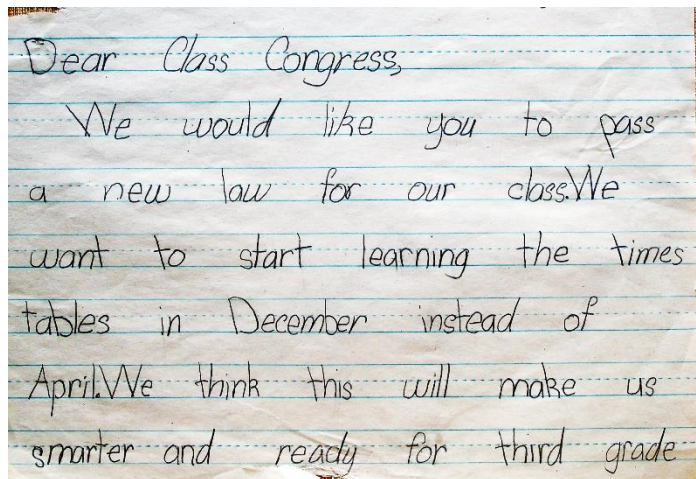 Dear Class Congress,
We would like you to pass
a new law for our class.We
want to start learning the times
tables in December instead of
April.We think this will make us
smarter and ready for third grade